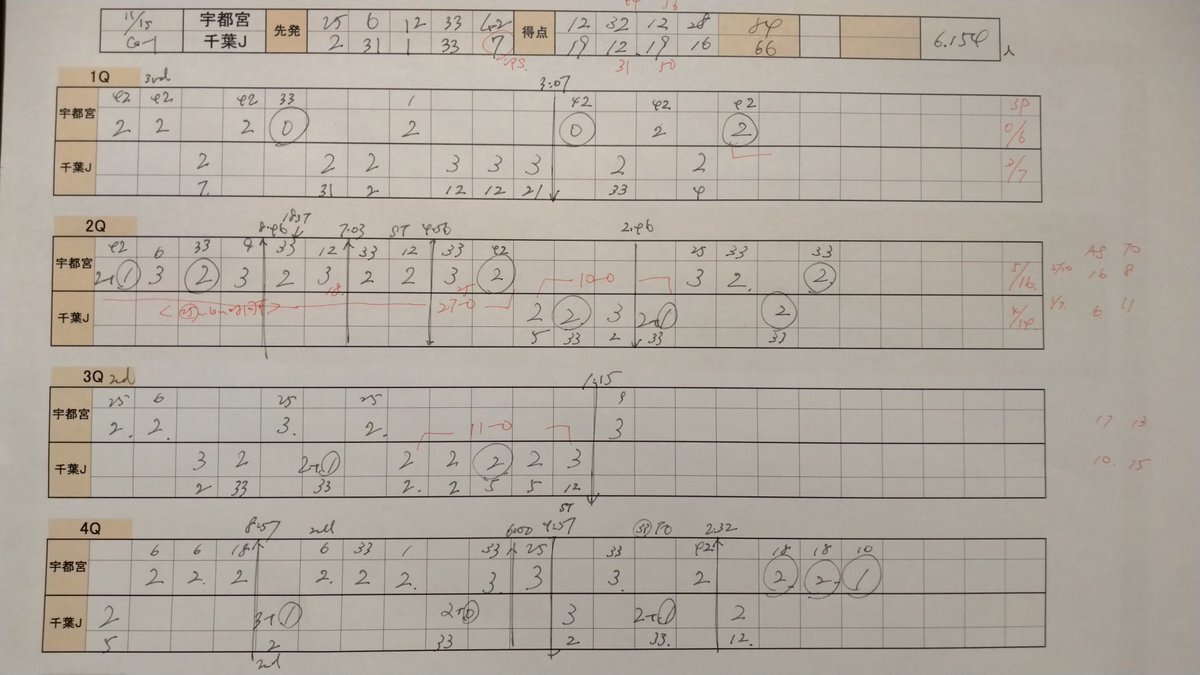 11/15 宇都宮 先発 25 6 12 33 42 得点 12 32 12 28 84
千葉J 2 31 1 33 7 19 12 19 16 66 6.154人
31 50
1Q 3rd 3:07
宇都宮 42 42 42 33 1 42 42 42 3P
2 2 2 0 2 0 2 2 0/6
千葉J 2 2 2 3 3 3 2 2
7 31 2 12 12 21 33 4
2Q 8:46 18ST 7:03 ST 4:56 2:46
宇都宮 42 6 33 9 33 12 33 12 33 42 25 33 33 AS TO
2+1 3 2 3 2 3 2 2 3 2 10-0 3 2 2 5/16 16 8
27-0
千葉J 2 2 3 2+1 2 4/14 6 11
5 33 2 33 33
3Q 2nd 1:15
宇都宮 25 6 25 25 9
2 2 3 2 11-0 3 17 13
千葉J 3 2 2+1 2 2 2 2 3 10 15
2 33 33 2 2 5 5 12
ST
4Q 8:57 2nd 6:00 4:57 33 TO 2:32
宇都宮 6 6 18 6 33 1 33 25 33 42 18 18 10
2 2 2 2 2 2 3 3 3 2 2 2 1
千葉J 2 3+1 2+0 3 2+1 2
5 2 33 2 33 12
2nd